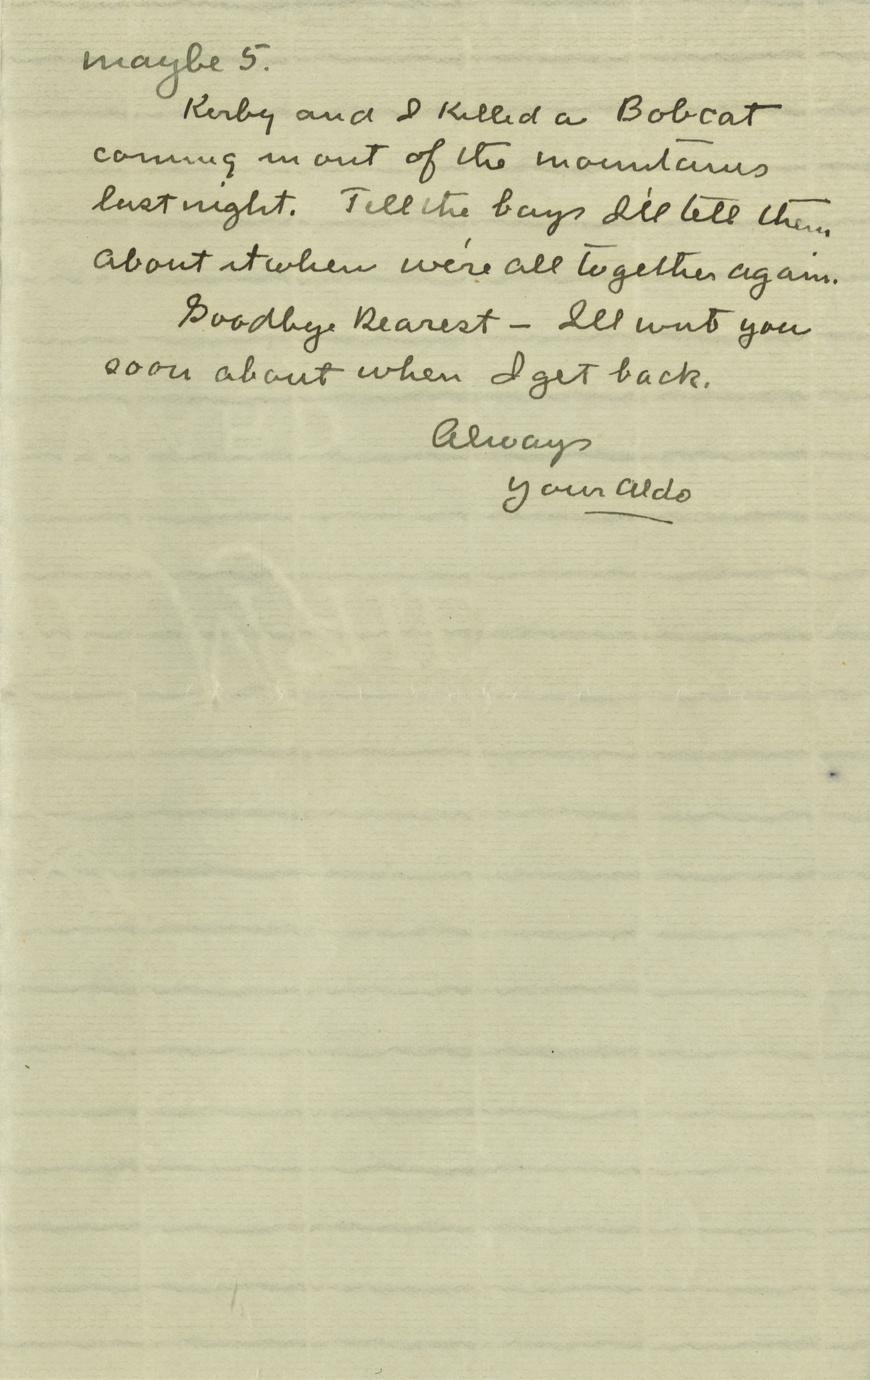 maybe 5.
Kerby and I killed a Bobcat
coming in out of the mountains
last night. Tell the boys I'll tell them
about it when we're all together again.
Goodbye Dearest – I'll write you
soon about when I get back.
Always
your Aldo